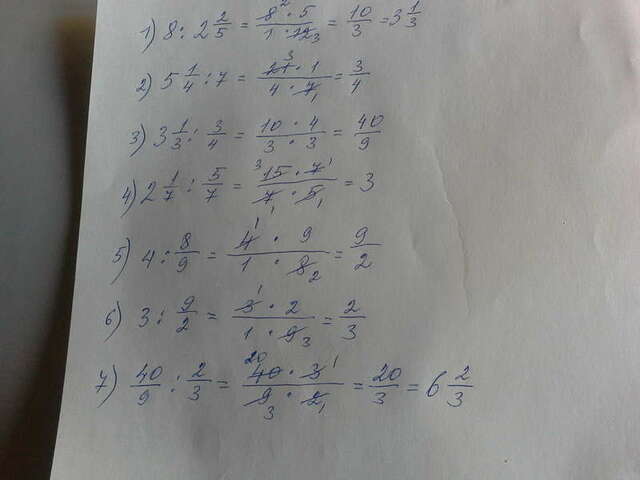 1) 8 : 2 2/5 = 8 2 · 5 / 1 · 12 3 = 10/3 = 3 1/3
2) 5 1/4 : 7 = 21 3 · 1 / 4 · 7 1 = 3/4
3) 3 1/3 : 3/4 = 10 · 4 / 3 · 3 = 40/9
4) 2 1/7 : 5/7 = 3 15 · 7 1 / 7 1 · 5 1 = 3
5) 4 : 8/9 = 4 1 · 9 / 1 · 8 2 = 9/2
6) 3 : 9/2 = 3 1 · 2 / 1 · 9 3 = 2/3
7) 40/9 : 2/3 = 20 40 · 3 1 / 9 3 · 2 1 = 20/3 = 6 2/3